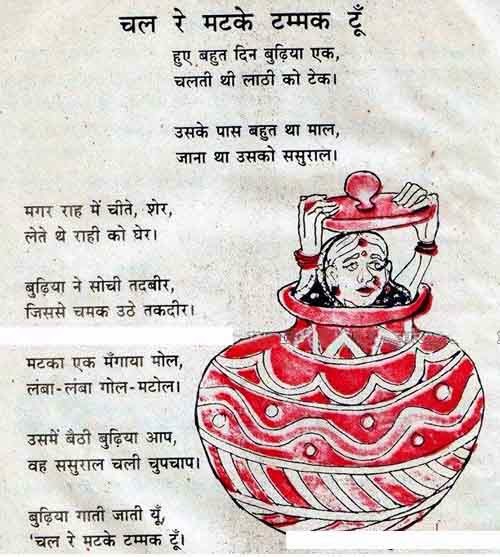 चल रे मटके टम्मक टूँ
हुए बहुत दिन बुढ़िया एक,
चलती थी लाठी को टेक।
उसके पास बहुत था माल,
जाना था उसको ससुराल।
मगर राह में चीते, शेर,
लेते थे राही को घेर।
बुढ़िया ने सोची तदबीर,
जिससे चमक उठे तकदीर।
मटका एक मँगाया मोल,
लंबा-लंबा गोल-मटोल।
उसमें बैठी बुढ़िया आप,
वह ससुराल चली चुपचाप।
बुढ़िया गाती जाती यूँ,
'चल रे मटके टम्मक टूँ।